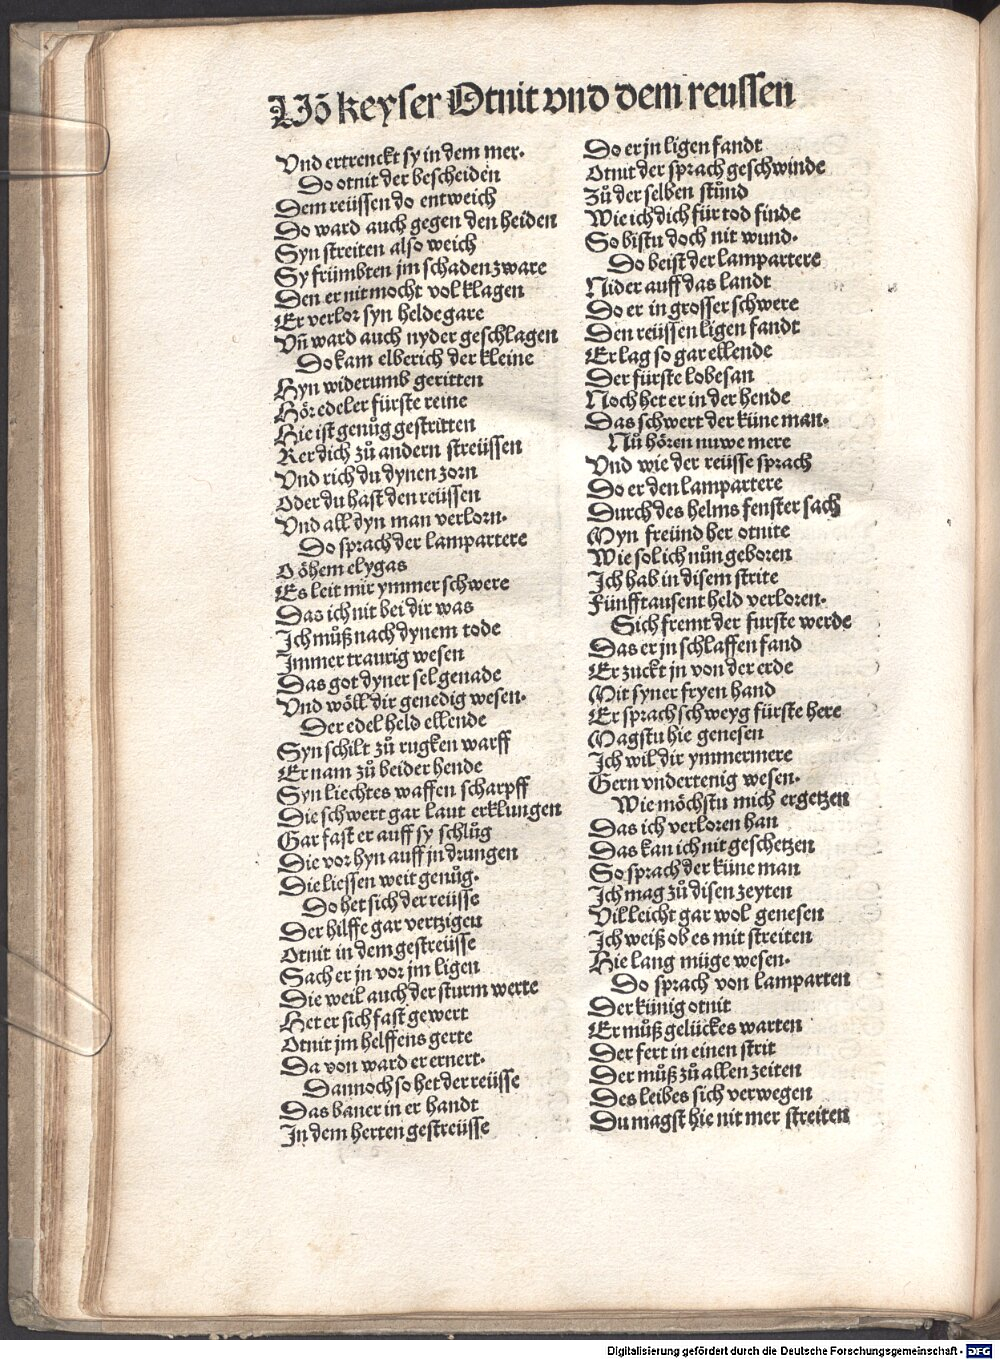 Võ keyser Otnit vnd dem reussen
Vnd ertrenckt sy in dem mer.
Do otnit der bescheiden
Dem reüssen do entweich
Do ward auch gegen den heiden
Syn streiten also weich
Sy frümbten jm schaden zware
Den er nit mocht vol klagen
Er verlor syn helde gare
Vñ ward auch nyder geschlagen
Do kam elberich der kleine
Hyn widerumb geritten
Hör edeler fürste reine
Hie ist genůg gestritten
Ker dich zů andern streüssen
Vnd rich du dynen zorn
Oder du hast den reüssen
Vnd all dyn man verlorn.
Do sprach der lampartere
O öhem elygas
Es leit mir ymmer schwere
Das ich nit bei dir was
Ich můß nach dynem tode
Immer traurig wesen
Das got dyner sel genade
Vnd wöll dir genedig wesen.
Der edel held ellende
Syn schilt zů rugken warff
Er nam zů beider hende
Syn liechtes waffen scharpff
Die schwert gar laut erklungen
Gar fast er auff sy schlůg
Die vor hyn auff jn drungen
Die liessen weit genůg.
Do het sich der reüsse
Der hilffe gar vertzigen
Otnit in dem gestreüsse
Sach er jn vor jm ligen
Die weil auch der sturm werte
Het er sich fast gewert
Otnit jm helffens gerte
Da von ward er ernert.
Dannoch so het der reüsse
Das baner in er handt
In dem herten gestreüsse
Do er jn ligen fandt
Otnit der sprach geschwinde
Zů der selben stůnd
Wie ich dich für tod finde
So bistu doch nit wund.
Do beist der lampartere
Nider auff das landt
Do er in grosser schwere
Den reüssen ligen fandt
Er lag so gar ellende
Der fürste lobesan
Noch het er in der hende
Das schwert der küne man.
Nů hören nuwe mere
Vnd wie der reüsse sprach
Do er den lampartere
Durch des helms fenster sach
Myn freünd her otnite
Wie sol ich nůn geboren
Ich hab in disem strite
Fünfftausent held verloren.
Sich fremt der furste werde
Das er jn schlaffen fand
Er zuckt jn von der erde
Mit syner fryen hand
Er sprach schweyg fürste here
Magstu hie genesen
Ich wil dir ymmermere
Gern vndertenig wesen.
Wie möchstu mich ergetzen
Das ich verloren han
Das kan ich nit geschetzen
So sprach der küne man
Ich mag zů disen zeyten
Villeicht gar wol genesen
Ich weiß ob es mit streiten
Hie lang müge wesen.
Do sprach von lamparten
Der künig otnit
Er můß gelückes warten
Der fert in einen strit
Der můß zů allen zeiten
Des leibes sich verwegen
Du magst hie nit mer streiten
Digitalisierung gefördert durch die Deutsche Forschungsgemeinschaft - DFG